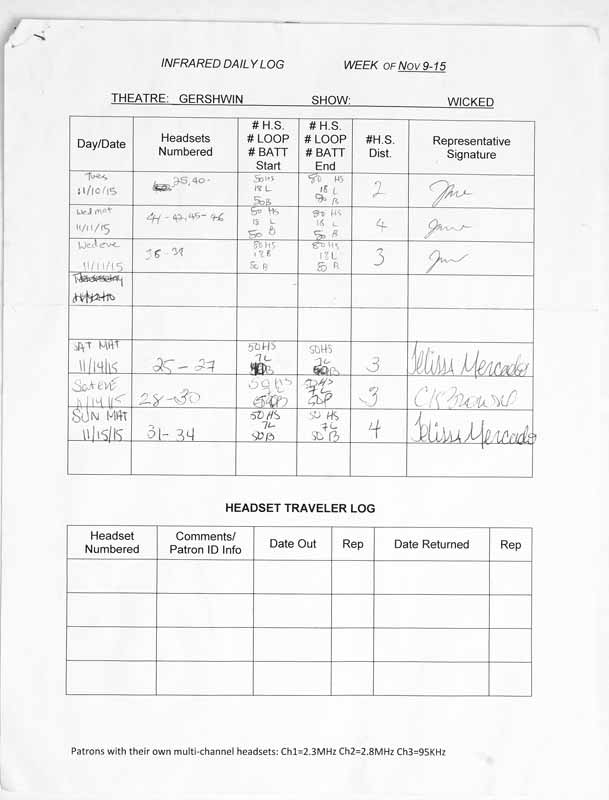 INFRARED DAILY LOG WEEK OF NOV 9-15
THEATRE: GERSHWIN SHOW: WICKED
Day/Date
Headsets
Numbered
# H.S.
# LOOP
# BATT
Start
# H.S.
# LOOP
# BATT
End
#H.S.
Dist.
Representative
Signature
Tues
11/10/15
25,40
50 HS
18 L
50 B
50 HS
18 L
50 B
2
Wed mat
11/11/15
41-42,45-46
50 HS
18 L
50 B
50 HS
18 L
50 B
4
Wed eve
11/11/15
50 HS
50 B
50 HS
18 L
50 B
3
SAT MAT
11/14/15
25-27
50 HS
7L
50 HS
7L
50B
3
Jelissa Mercado
Sat eve
11/14/15
28-30
50 HS
7L
50B
3
SUN MAT
11/15/15
31-34
50 HS
7L
50 B
50 HS
7L
50 B
4
Jelissa Mercado
HEADSET TRAVELER LOG
Headset
Numbered
Comments/
Patron ID Info
Date Out
Rep
Date Returned
Rep
Patrons with their own multi-channel headsets: Ch1=2.3MHz Ch2=2.8MHz Ch3=95KHz